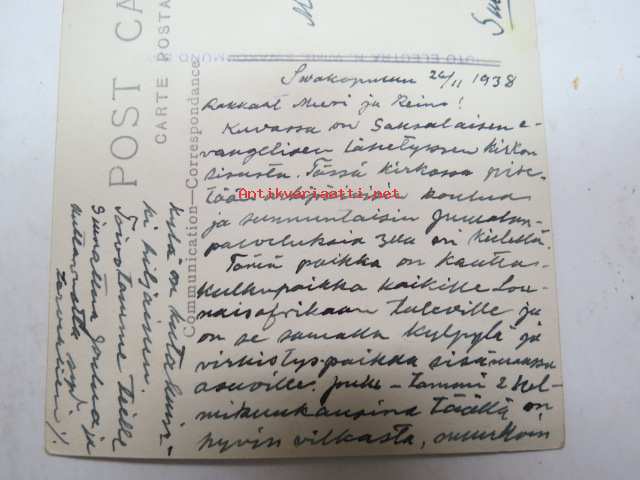 POST CA
CARTE POSTA
Communication—Correspondance
Swakopmun 26/11 1938
Rakkaat Meeri ja Reino!
Kuvassa on Saksalaisen e-
vangelisen lähetyksen kirkon
sisusta. Tässä kirkossa pide-
tään koulua
ja sunnuntaisin jumalan-
palveluksia 3lla eri kielellä.
Tämä paikka on kauttas-
kulkupaikka kaikille Lou-
naisafrikaan tuleville ja
on se samalla kylpylä ja
virkistyspaikka sisämaassa
asuville. Joulu-tammi & Hel-
mikuukausina täällä on
hyvin vilkasta, muulloin
kylä on kutakuin-
ki hiljainen.
Toivotamme Teille
Siunattua Joulua ja
Antikvariaatti.net